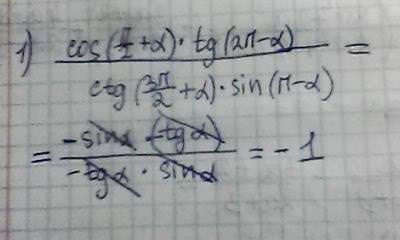 1) cos(π/2+α)·tg(2π-α) / ctg(3π/2+α)·sin(π-α) =
= -sinα (-tgα) / -tgα · sinα = -1